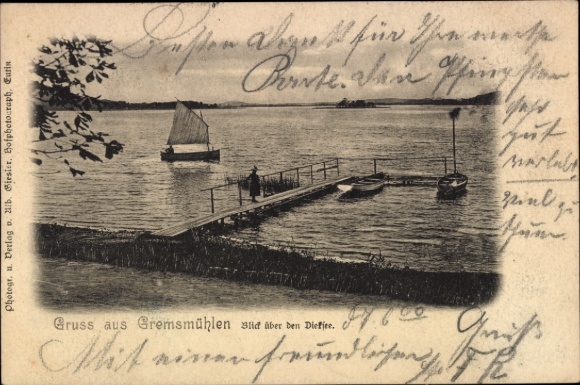 Besten Dank für Ihre werthe
Karte. Den Pfingsten
sehr
gut
verlebt.
Viel zu
thun.
Photogr. u Verlag v. Alb. Giesler, Hofphotograph, Eutin
Gruss aus Gremsmühlen Blick über den Dieksee.
Gruß
Mit einem freundlichen